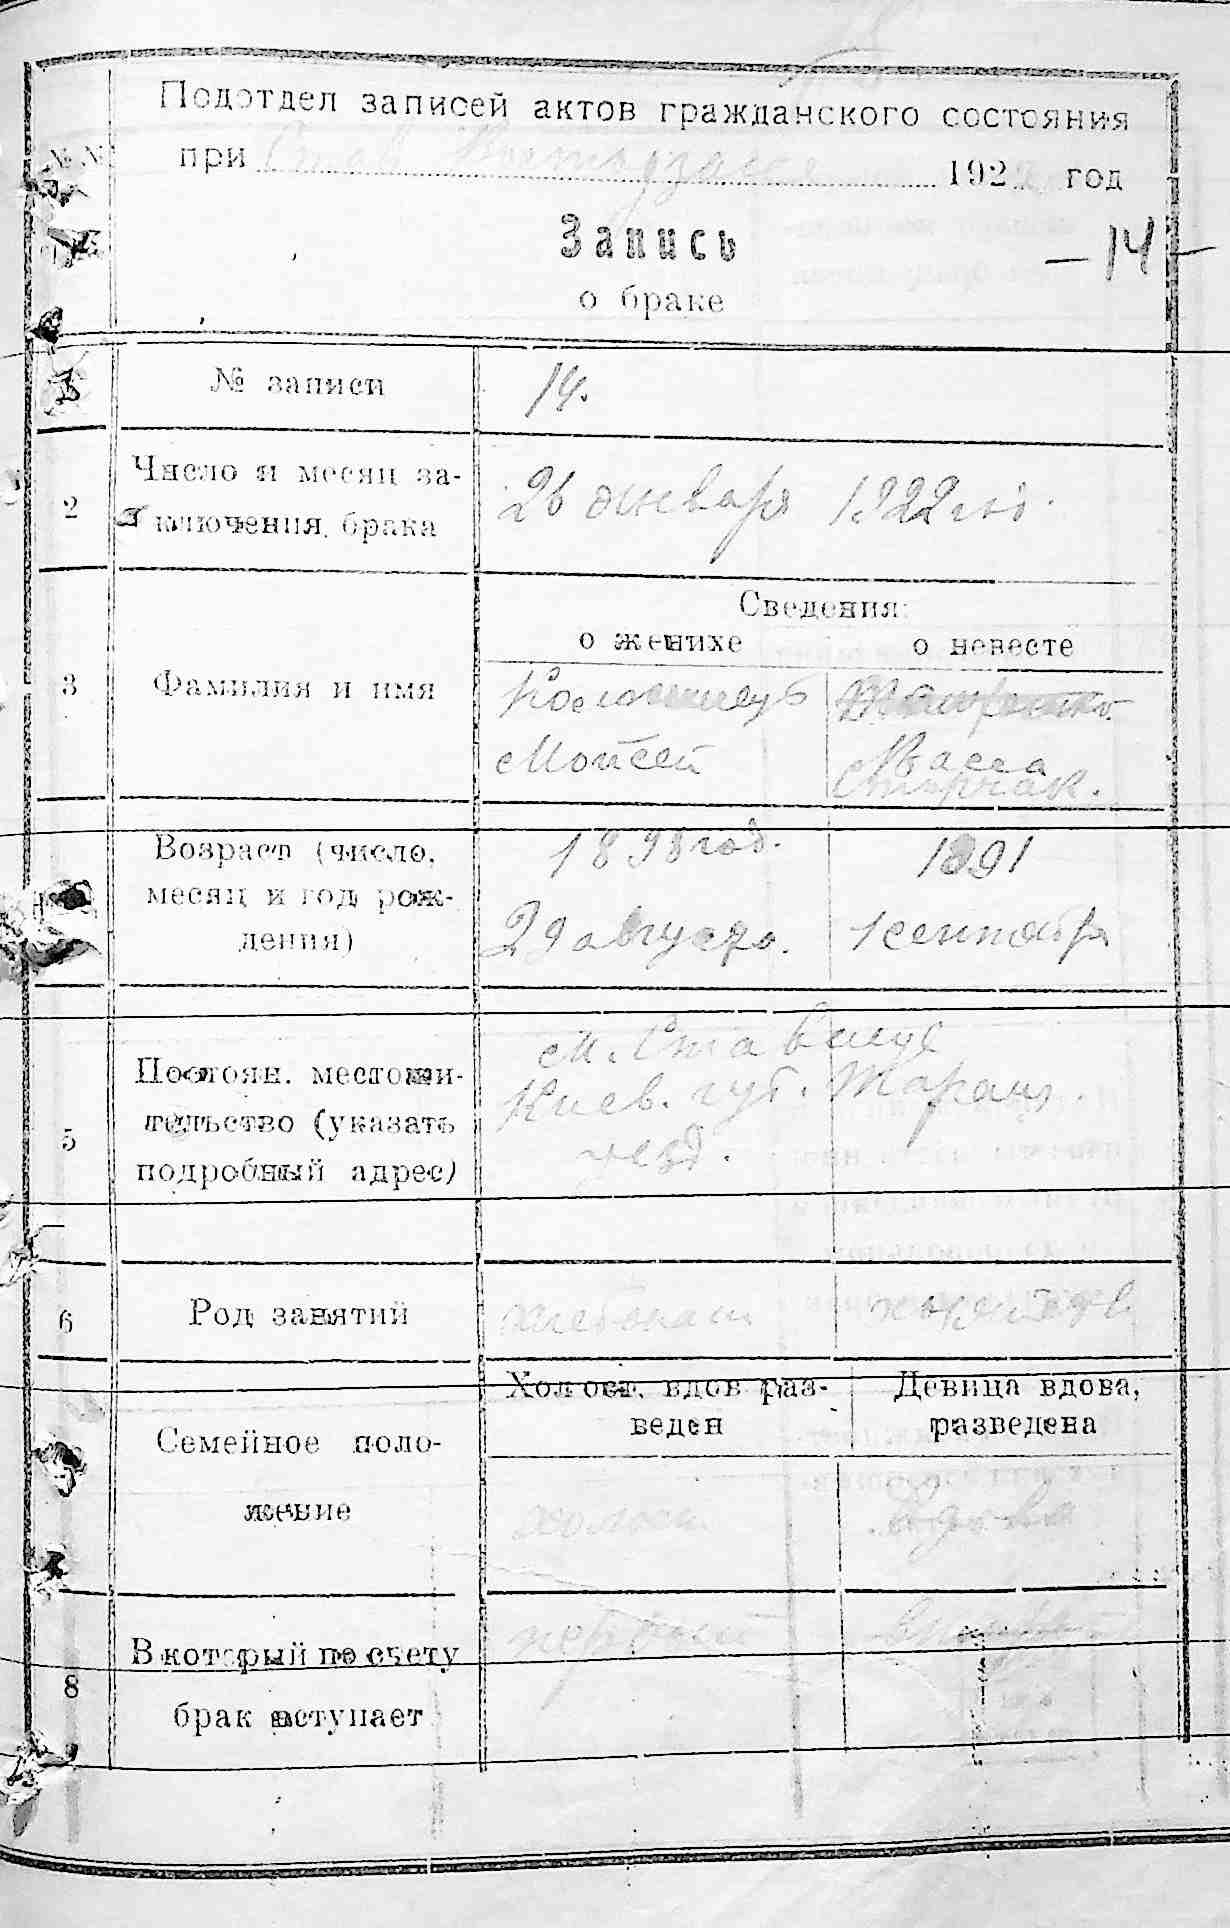 Подотдел записей актов гражданского состояния
при Став. 192 год
Запись
- 14 -
о браке
№ записи
14.
2
Число и месяц за-
ключения брака
26 января 1922 год.
Сведения:
о женихе
о невесте
3
Фамилия и имя
Моисей
Васса
Возраст (число,
месяц и год рож-
дения)
1898 год.
29 августа.
1891
1 сентября
5
Постоян. местожи-
тельство (указать
подробный адрес)
м. Ставище
Киев. губ. Таращ.
уезд.
6
Род занятий
хлебопаш
Семейное поло-
жение
Холост, вдов раз-
веден
Девица вдова,
разведена
холост
вдова
8
В который по счету
брак вступает
первый